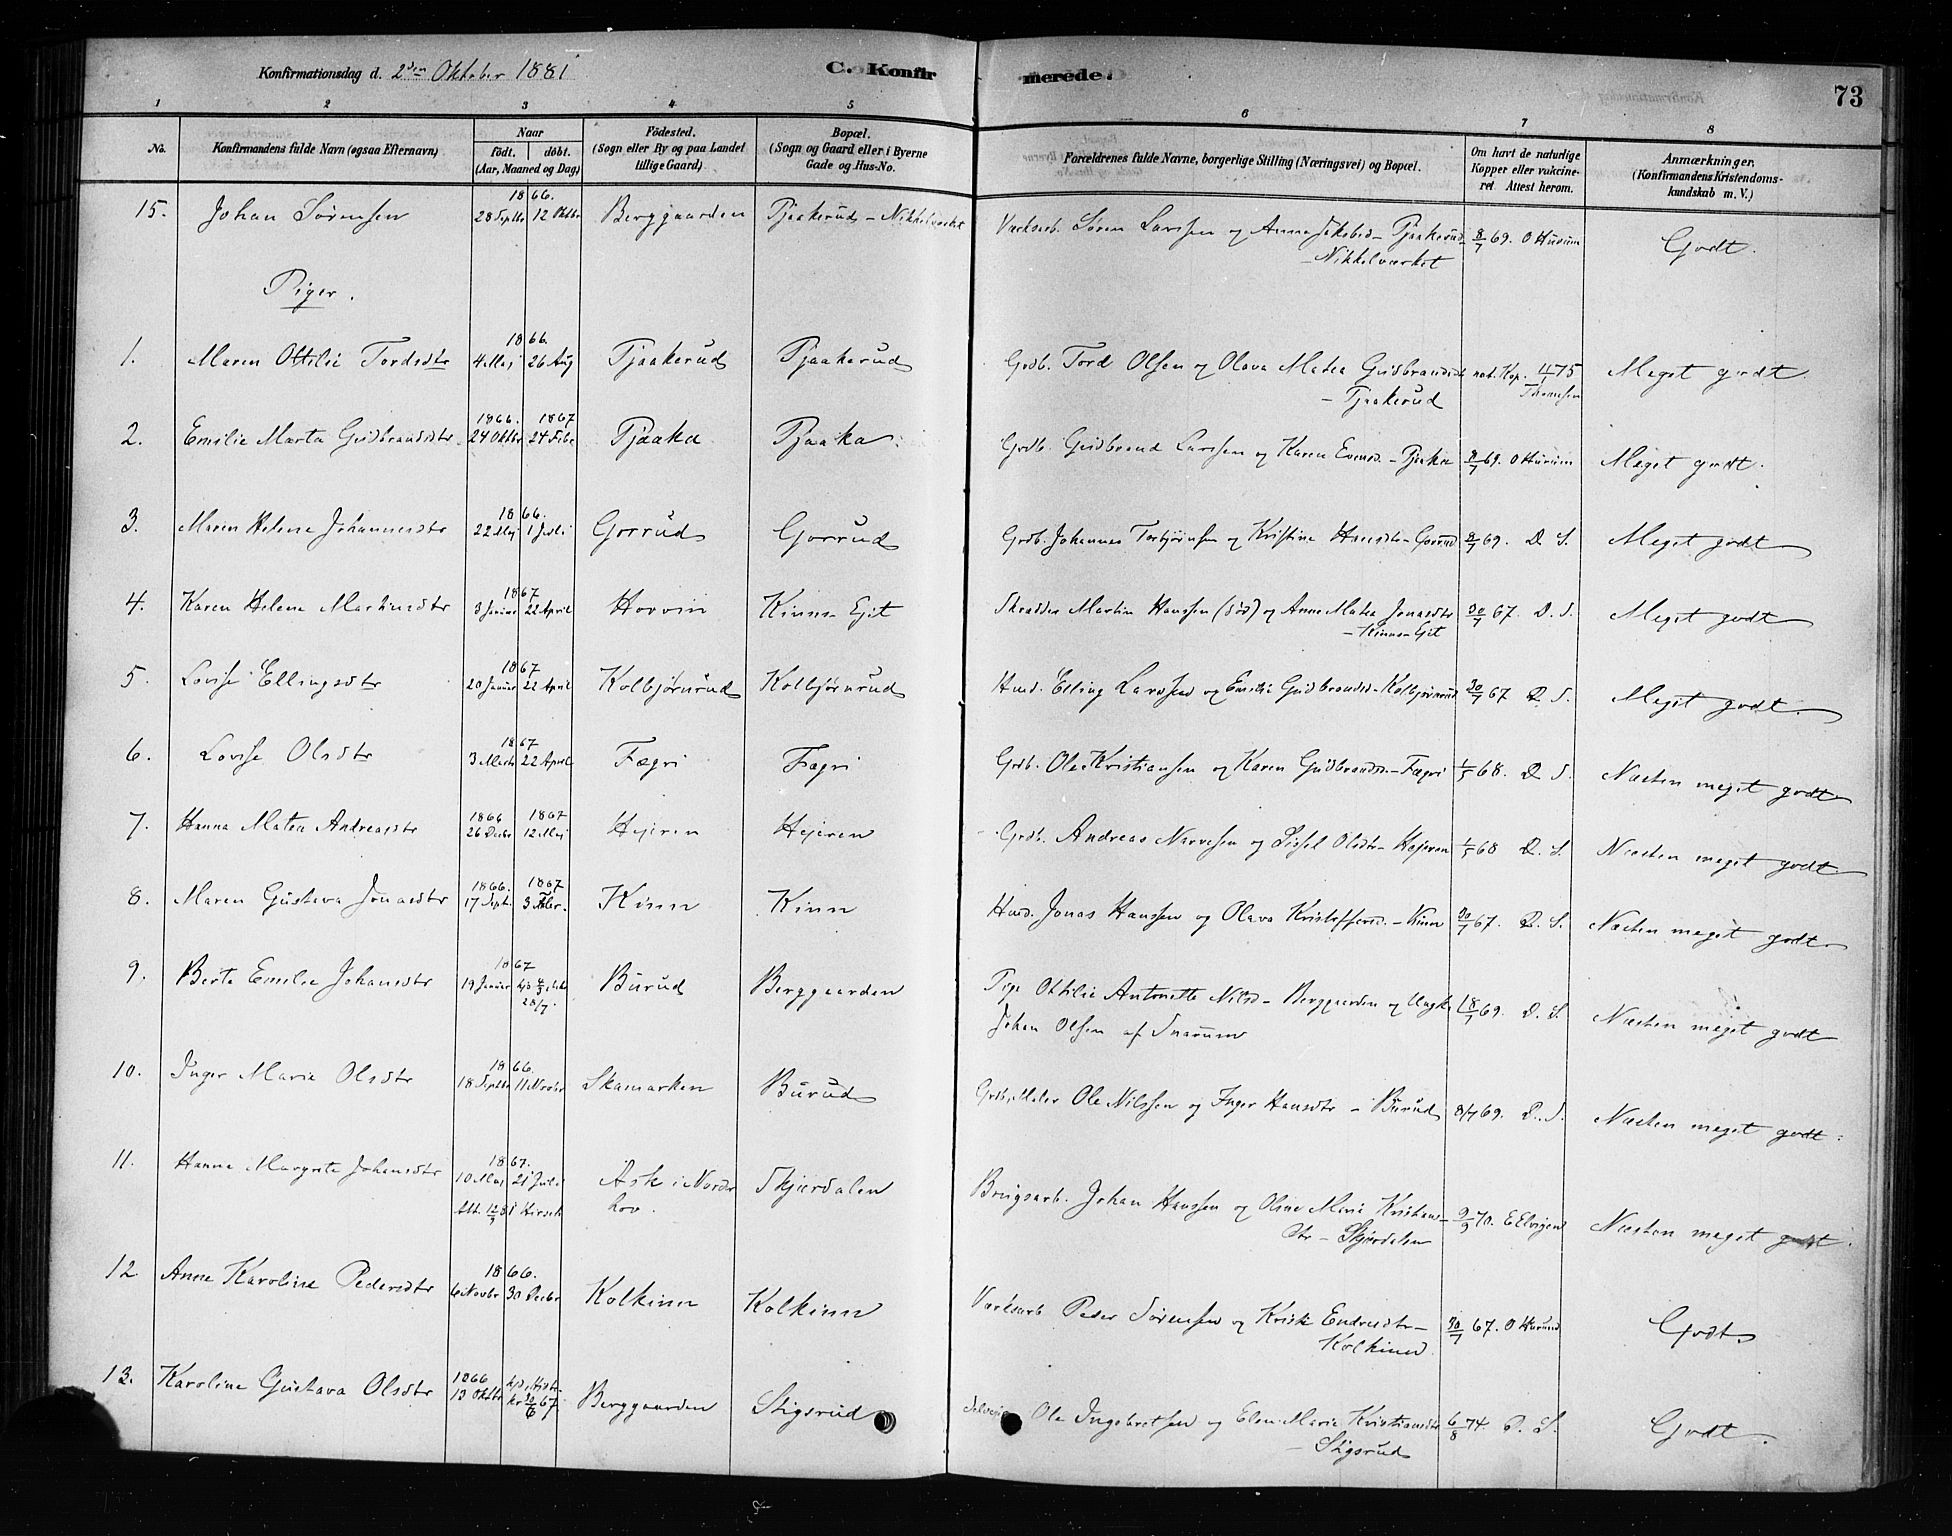 Konfirmationsdag d. 2den Oktober 1881
C. Konfirmerede.
73
1 2 3 4 5 6 7 8
No.
Konfirmandens fulde Navn (ogsaa Efternavn)
Naar
født. døbt.
(Aar, Maaned og Dag)
Fødested.
(Sogn eller By og paa Landet
tillige Gaard)
Bopæl.
(Sogn og Gaard eller i Byerne
Gade og Hus-No.
Forældrenes fulde Navne, borgerlige Stilling (Næringsvei) og Bopæl.
Om havt de naturlige
Kopper eller vakcine-
ret. Attest herom.
Anmærkninger.
(Konfirmandens Kristendoms-
kundskab m. V.)
1866.
15. Johan Sørensen 28 Septbr 12 Oktbr Berggaarden Tjaakerud - Nikkelværket Værksarb. Søren Larssen og Anne Jakobsd - Tjaakerud 8/7 69. O Hurum Godt.
- Nikkelværket
Piger.
1866.
1. Maren Ottilie Tordsdtr 4 Maj 26 Aug Tjaakerud Tjaakerud Grdb. Tord Olsen og Olava Matea Gudbrandsdt nat. Kop. 11/1 75 Meget godt.
- Tjaakerud Thomesen
1866. 1867
2. Emilie Marta Gudbrandsdtr. 24 Oktbr 24 Febr Tjaaka Tjaaka Grdb. Gudbrand Larssen og Karen Evensd. - Tjaaka 8/7 69. O Hurum Meget godt.
1866.
3. Maren Helene Johannesdtr 22 Maj 1 Juli Gorrud Gorrud Grdb. Johannes Torbjørnsen og Kristine Hansdtr - Gorrud 8/7 69. D. S. Meget godt
1867
4. Karen Helene Martinsdtr 3 Januar 22 April Hovvin Kinns-Ejet Skrædder Martin Hanssen (død) og Anne Matea Jonasdtr 30/7 67. D. S. Meget godt
- Kinns-Ejet
1867
5. Lovise Ellingsdtr 20 Januar 22 April Kolbjørnrud Kolbjørnrud Husd. Elling Larssen og Emilie Gudbrandsd - Kolbjørnrud 30/7 67 D. S. Meget godt.
1867
6. Lovise Olsdtr 3 Marts 22 April Fægri Fægri Grdb. Ole Kristiansen og Karen Gudbrandsd. - Fægri 1/5 68. D. S. Næsten meget godt
1866 1867
7. Hanna Matea Andreasdtr 26 Decbr 12 Maj Hejeren Hejeren Grdb. Andreas Narvesen og Sissel Olsdtr - Hejeren 1/5 68 D. S. Næsten meget godt
1866. 1867
8. Maren Gustava Jonasdtr 17 Sept. 3 Febr. Kinn Kinn Husd. Jonas Hanssen og Olava Kristoffersd. - Kinn 30/7 67. D. S. Næsten meget godt
1867
9. Berte Emilie Johansdtr 19 Januar Burud Berggaarden Pige Ottilie Antonette Nilsd - Berggaarden og Ungk. 8/7 69. D. S. Næsten meget godt
28/7. Johan Olsen af Snarum
1866.
10. Inger Marie Olsdtr 18 Septbr 11 Novbr Skamarken Burud Grdb. Maler Ole Nilssen og Inger Hansdtr - Burud 8/7 69. D. S. Næsten meget godt.
1867.
11. Hanna Margrete Johansdtr 10 Maj 21 Juli Ask i Norder Skjærdalen Brugsarb. Johan Hanssen og Oline Marie Kristians- 9/9 70. E Elvigen Næsten meget godt.
Att. 12/9 81 hov. dtr - Skjærdalen
1866.
12 Anne Karoline Pedersdtr 6 Novbr 30 Decbr Kolkinn Kolkinn Værksarb. Peder Sørensen og Kristi Endresdtr - 30/7 67. O Hurum Godt
Kolkinn
1866
13. Karoline Gustava Olsdtr 13 Oktbr 67 Berggaarden Stigsrud Selvejer Ole Ingebretsen og Elen Marie Kristiansdtr 6/8 74. D. S. Godt.
- Stigsrud